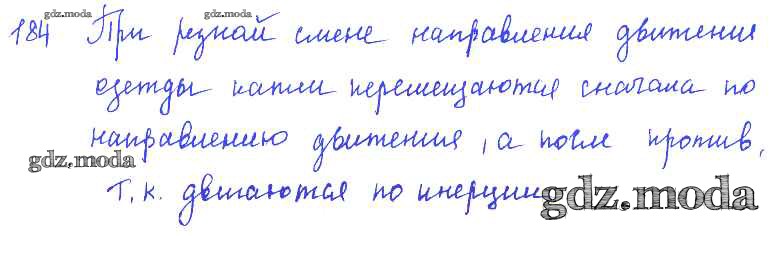 gdz.moda gdz.moda
184 При резкой смене направления движения
одежды капли перемещаются сначала по
направлению движения, а после против,
gdz.moda
т.к. двигаются по инерции
gdz.moda